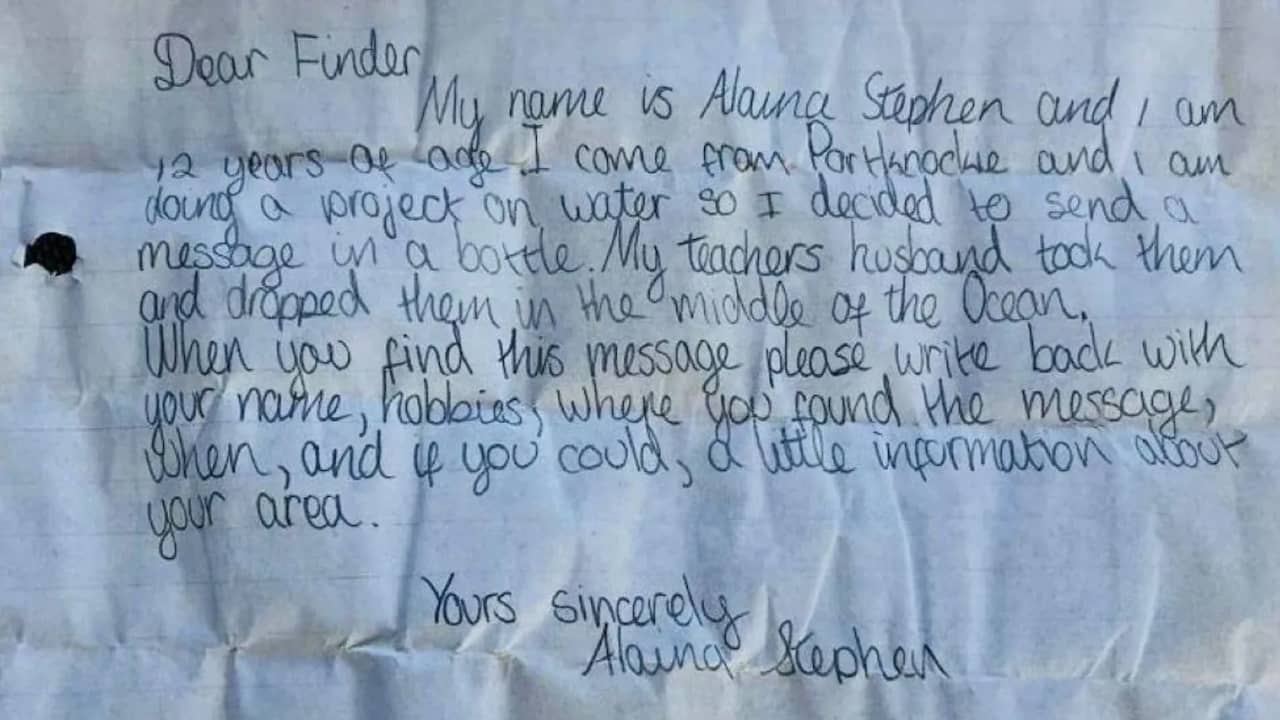 Dear Finder
My name is Alaina Stephen and I am
12 years of age. I come from Portknockie and I am
doing a project on water so I decided to send a
message in a bottle. My teachers husband took them
and dropped them in the middle of the Ocean.
When you find this message please write back with
your name, hobbies, where you found the message,
When, and if you could, a little information about
your area.
Yours sincerely
Alaina Stephen